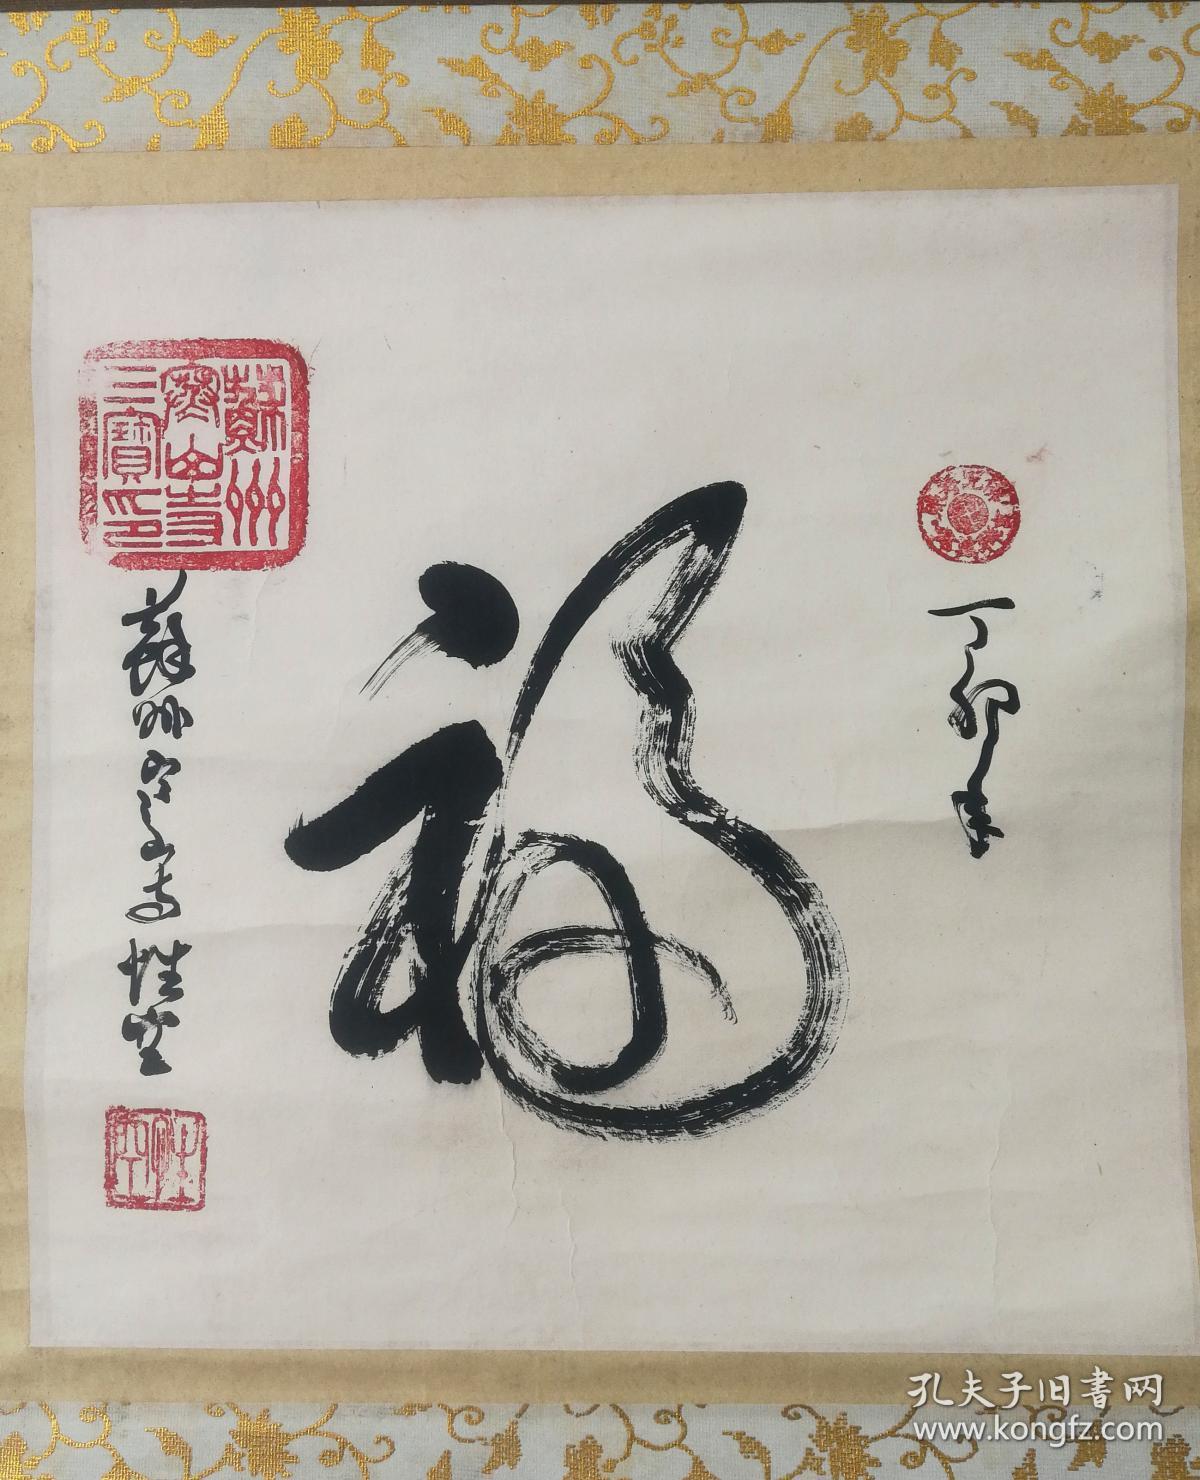 丁卯年
福
蘇州寒山寺性空
蘇州
寒山寺
三寶印
性空
孔夫子旧書网
www.kongfz.com